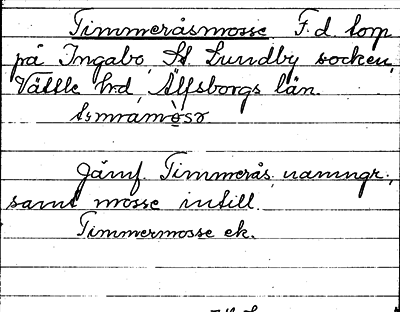 Timmeråsmosse F. d. torp
på Ingabo, St. Lundby socken,
Vättle hrd, Älfsborgs län.
Jämf. Timmerås, namngr.,
samt mosse intill.
Timmermosse ek.